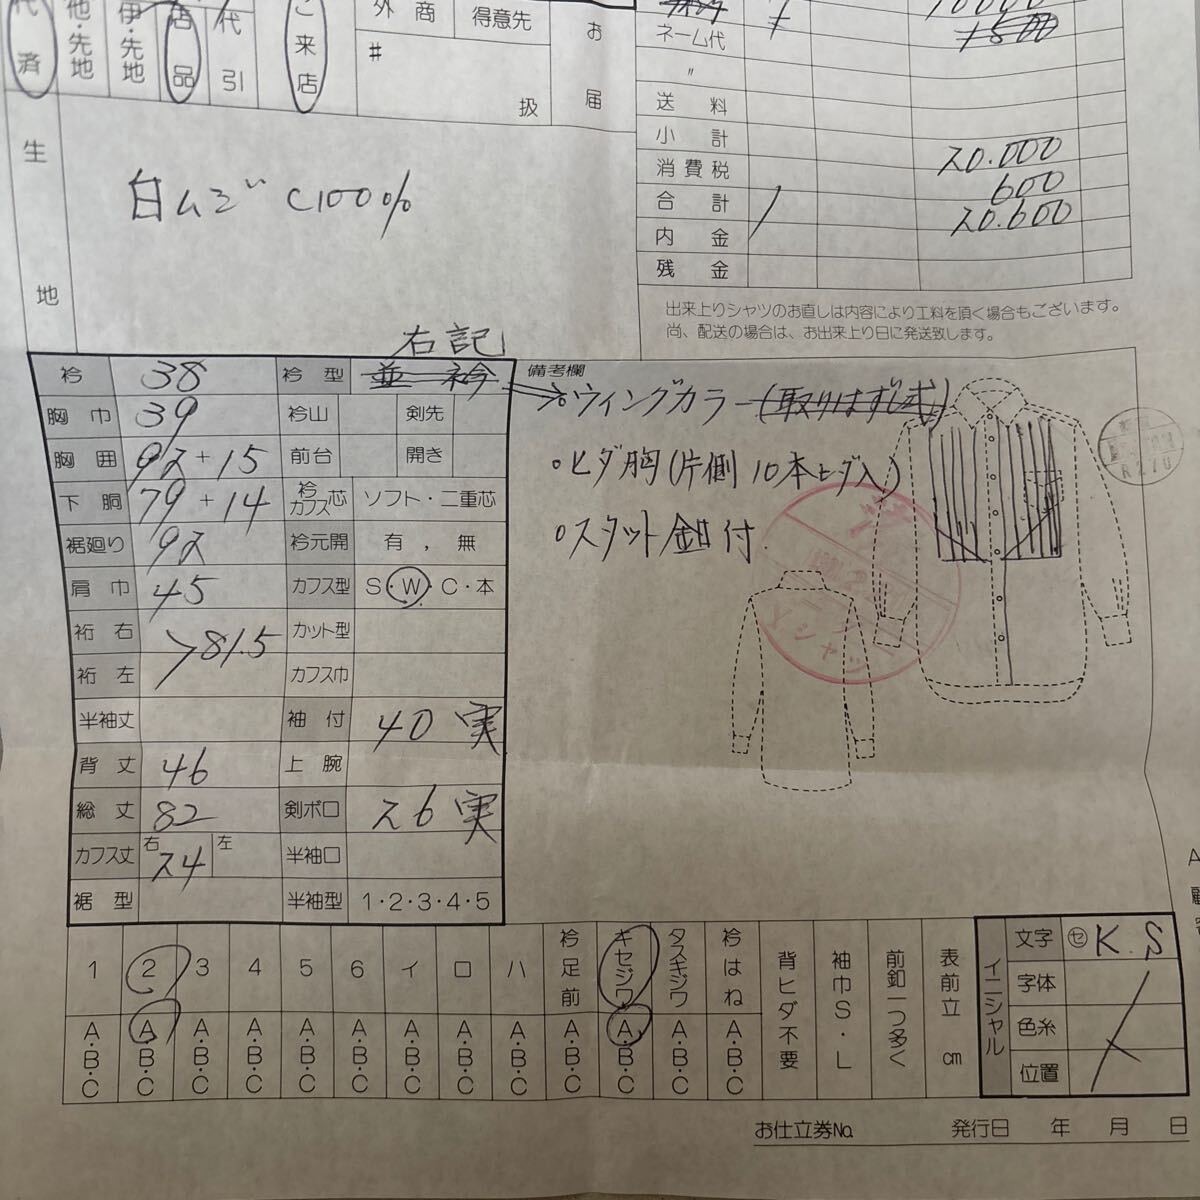 代済
他・先地
伊・先地
店品
代引
ご来店
外商
得意先
#
扱
お届
ネーム代
1500
〃
送料
小計
20.000
消費税
600
合計
20.600
内金
残金
出来上りシャツのお直しは内容により工料を頂く場合もございます。
尚、配送の場合は、お出来上り日に発送致します。
生地
白ムジ C100%
右記
衿 38 衿型 並衿
胸巾 39 衿山 剣先
胸囲 92+15 前台 開き
下胴 79+14 衿カフス芯 ソフト・二重芯
裾廻り 92 衿元開 有，無
肩巾 45 カフス型 S・W・C・本
裄右 81.5 カット型
裄左 カフス巾
半袖丈 袖付 40 実
背丈 46 上腕
総丈 82 剣ボロ 26 実
カフス丈 右 24 左 半袖口
裾型 半袖型 1・2・3・4・5
備考欄
ウィングカラー(取りはずし式)
・ヒダ胸(片側10本ヒダ入)
・スタット釦付
Yシャツ
1 2 3 4 5 6 イ ロ ハ 衿足前 キセジワ タスキジワ 衿はね 背ヒダ不要 袖巾S・L 前釦一つ多く 表前立 cm
A・B・C A・B・C A・B・C A・B・C A・B・C A・B・C A・B・C A・B・C A・B・C A・B・C A・B・C A・B・C A・B・C
イニシャル
文字 ㋝ K.S
字体
色糸
位置
お仕立券No. 発行日 年 月 日